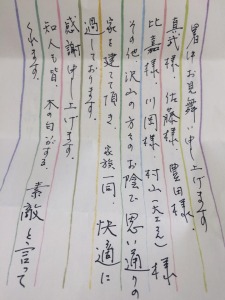 暑中お見舞い申し上げます。
真武様、佐藤様、豊田様、
比嘉様、川岡様、村山(大工さん)様
その他沢山の方々のお陰で思い通りの
家を建てて頂き、家族一同、快適に
過しております。
感謝申し上げます。
知人も皆、木の匂がする、素敵と言って
くれます。